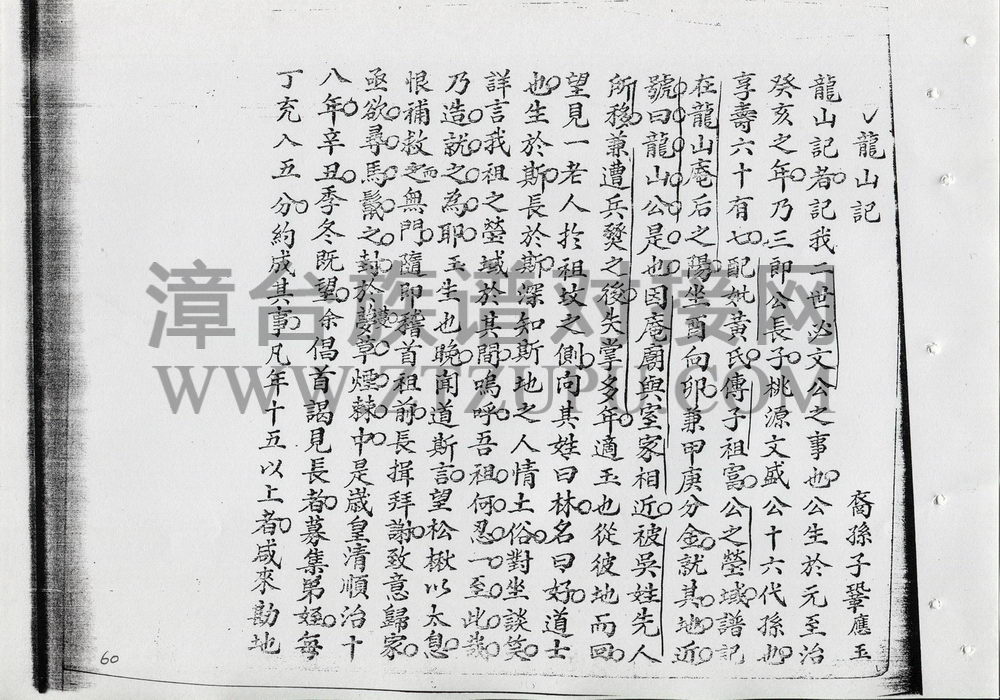 龍山記
裔孫子鞏應玉
龍山記者記我二世必文公之事也公生於元至治
癸亥之年乃三郎公長子桃源文盛公十六代孫也
享壽六十有七配妣黃氏傳子祖富公之塋域譜記
在龍山庵后之陽坐酉向卯兼甲庚分金就其地近
號曰龍山公是也因庵廟與室家相近被吳姓先人
所移兼遭兵燹之後失掌多年適玉也從彼地而回
望見一老人於祖坟之側问其姓曰林名曰好道士
也生於斯長於斯深知斯地之人情土俗對坐談笑
詳言我祖之塋域於其間嗚呼吾祖何忍一至此哉
乃造說之為耶玉生也晚聞道斯言望松楸以太息
恨補救之而無門隨即稽首祖前長揖拜謝致意歸家
亟欲尋馬鬣之封於蔓草煙棘中是歲皇清順治十
八年辛丑季冬既望余倡首謁見長者募集弟姪每
丁充入五分約成其事凡年十五以上者咸來勘地
60
漳台族谱对接网
WWW.ZTZUPU.COM